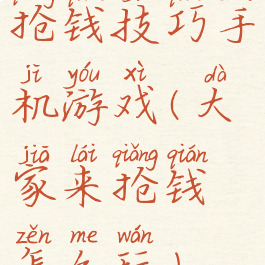 抢钱技巧手
jī yóu xì dà
机游戏(大
jiā lái qiǎng qián
家来抢钱
zěn me wán
怎么玩)